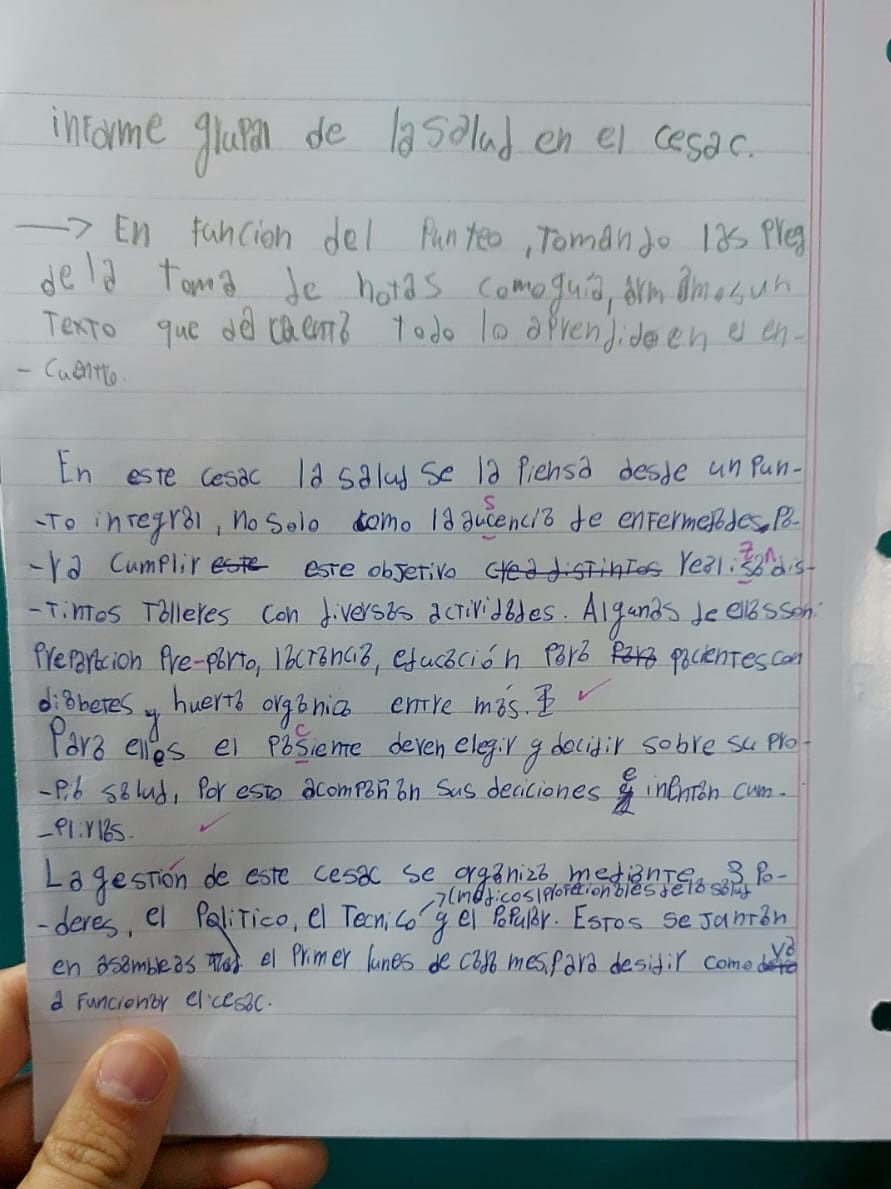 informe grupal de la salud en el cesac.
—> En funcion del Punteo, Tomando las Preg
de la toma de notas como guia, armamos un
Texto que de cuenta todo lo aprendido en el en-
- cuentro.
En este cesac la salud se la Piensa desde un Pun-
-To integral, no solo como la aucencia de enfermedades. Pa-
s
-ra Cumplir este este objetivo crea distintos realisan dis-
z n
-Tintos Talleres con diversas actividades. Algunas de ellas son:
Preparacion Pre-parto, lactancia, educación Para Para pacientes con
diabetes y huerta orgánica entre más. ✓
Para elles el Pasiente deven elegir y decidir sobre su pro-
c
-Pia salud, Por esto acompañan sus deciciones y intentan cum-
e
-Plirlas. ✓
La gestión de este cesac se organiza mediante 3 Po-
->(medicos/profecionales de la salud
-deres, el Politico, el Tecnico y el Popular. Estos se Jantan
en asambleas el Primer lunes de cada mes, para desidir como va
a funcionar el cesac.